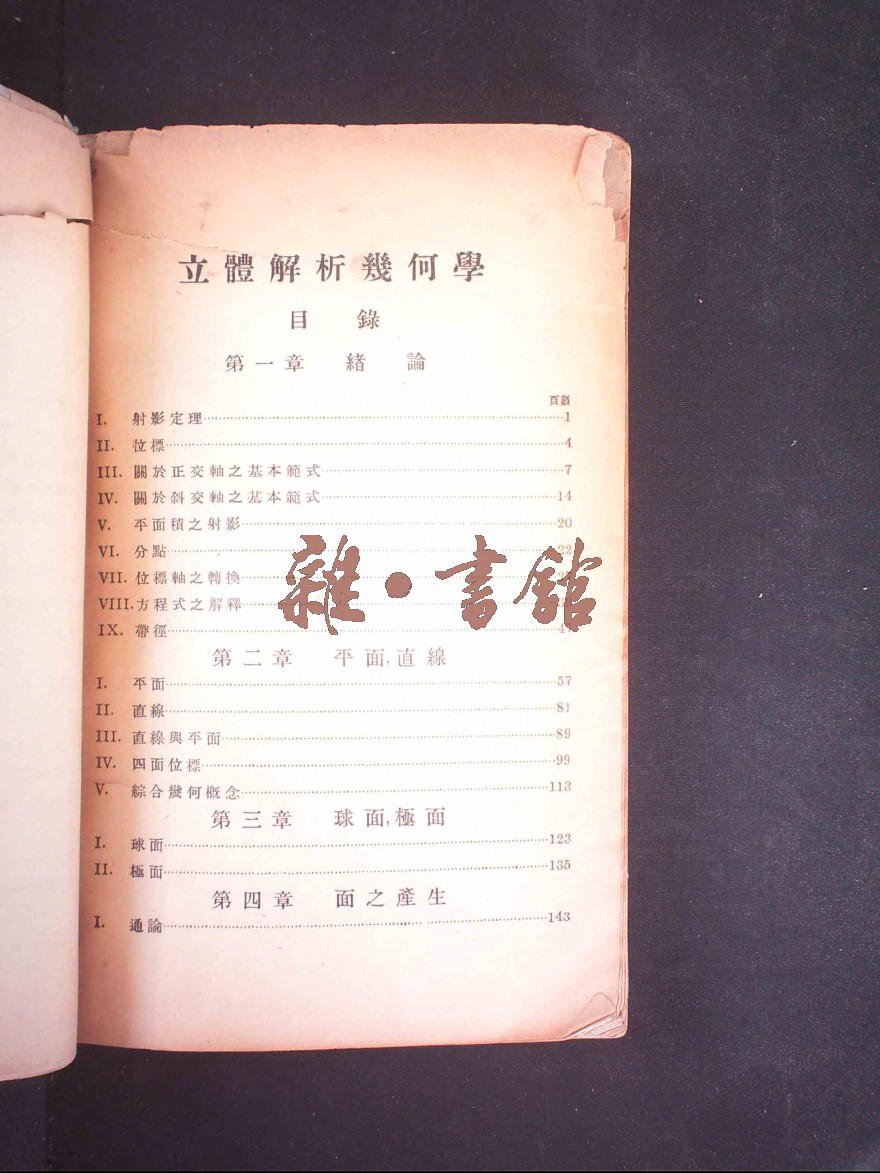 立體解析幾何學
目 錄
第一章 緒 論
頁數
I. 射影定理 1
II. 位標 4
III. 關於正交軸之基本範式 7
IV. 關於斜交軸之基本範式 14
V. 平面積之射影 20
VI. 分點 22
VII. 位標軸之轉換
VIII. 方程式之解釋
IX. 帶徑
雜・書館
第二章 平面,直線
I. 平面 57
II. 直線 81
III. 直線與平面 89
IV. 四面位標 99
V. 綜合幾何概念 113
第三章 球面,極面
I. 球面 123
II. 極面 135
第四章 面之產生
I. 通論 143